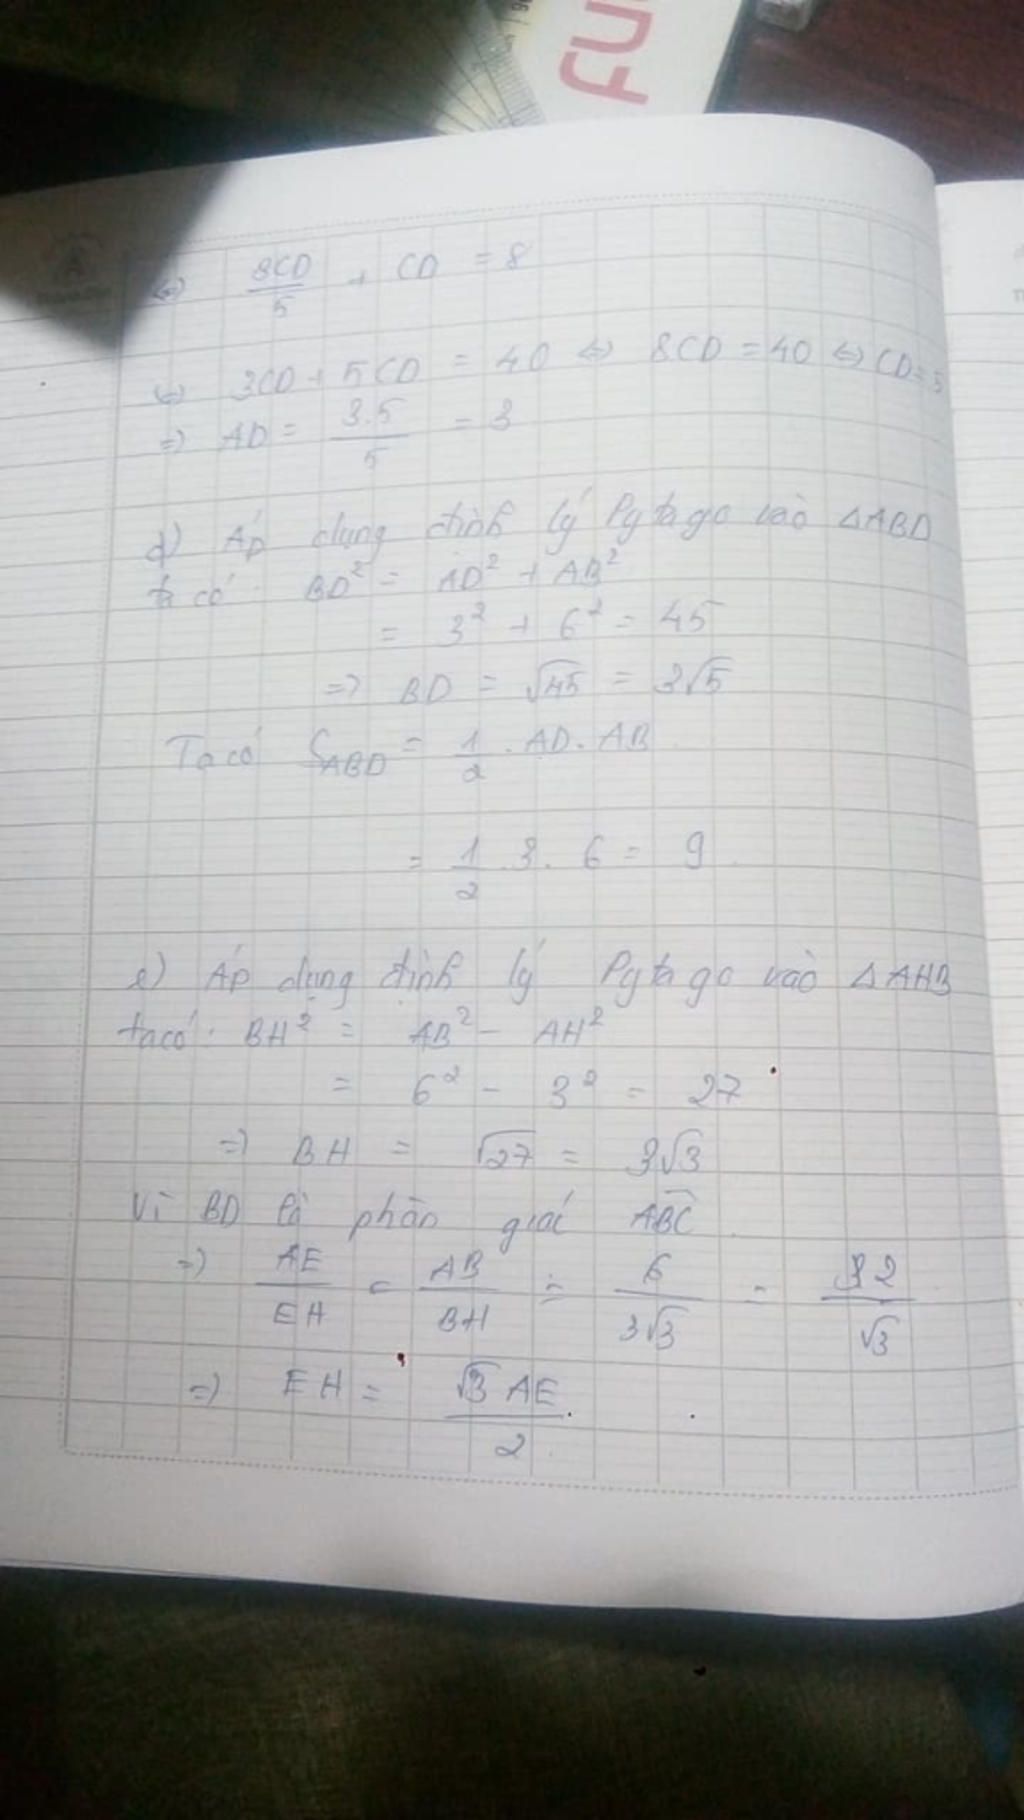 FU
⇔ 3CD/5 + CD = 8
⇔ 3CD + 5CD = 40 ⇔ 8CD = 40 ⇔ CD = 5
⇒ AD = 3.5/5 = 3
d) Áp dụng định lý Pytago vào ΔABD
ta có: BD² = AD² + AB²
= 3² + 6² = 45
⇒ BD = √45 = 3√5
Ta có S_ABD = 1/2 . AD . AB
= 1/2 . 3 . 6 = 9
e) Áp dụng định lý Pytago vào ΔAHB
ta có: BH² = AB² - AH²
= 6² - 3² = 27
⇒ BH = √27 = 3√3
Vì BD là phân giác ABC
⇒ AE/EH = AB/BH = 6/3√3 = 2/√3
⇒ EH = √3 AE/2